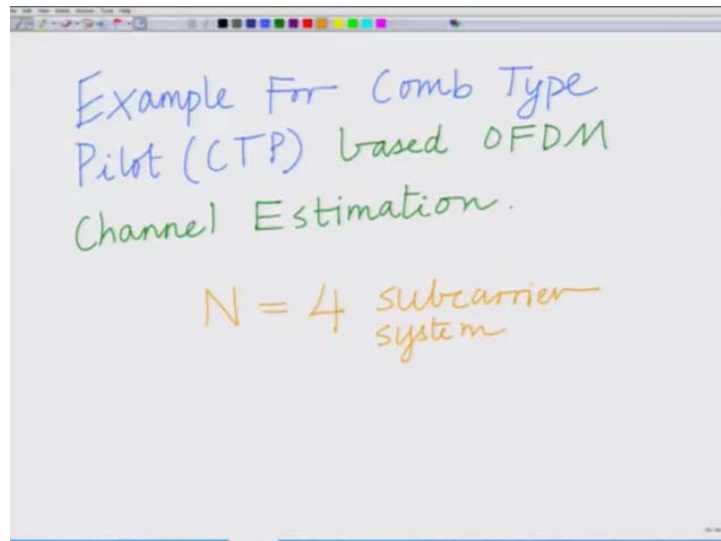 Example For Comb Type
Pilot (CTP) based OFDM
Channel Estimation.
N = 4 subcarrier
system